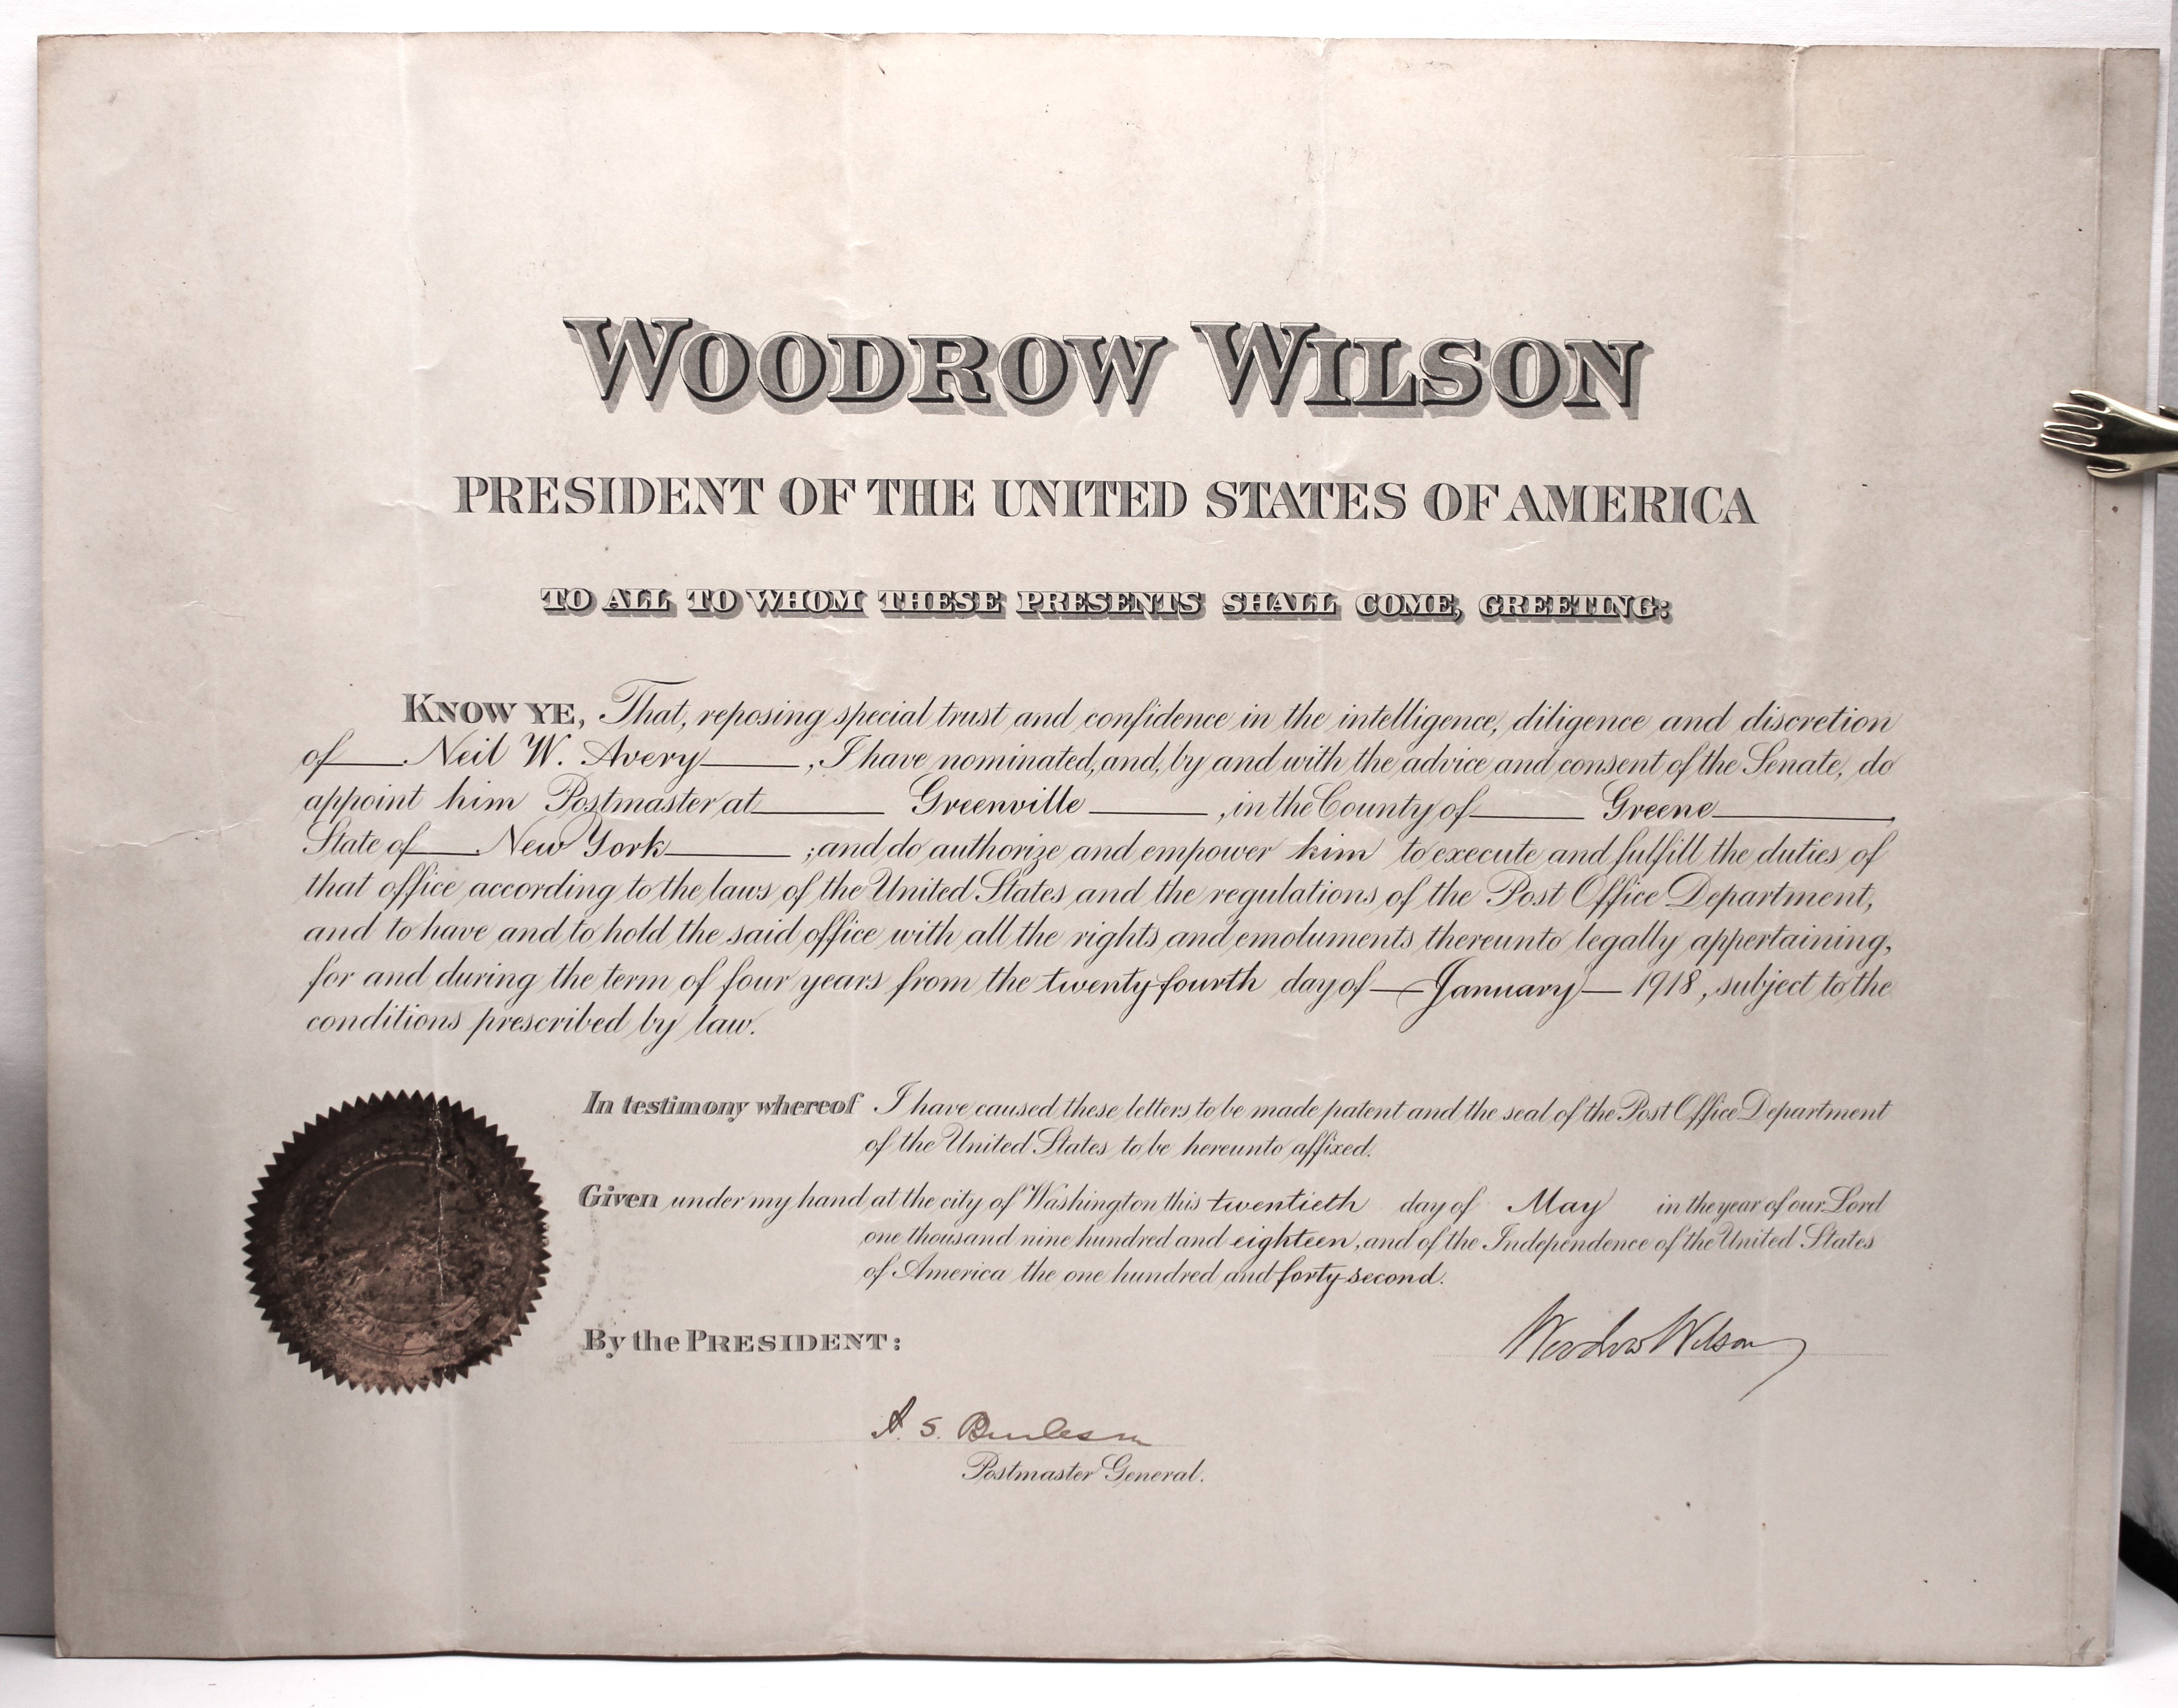 WOODROW WILSON
PRESIDENT OF THE UNITED STATES OF AMERICA
TO ALL TO WHOM THESE PRESENTS SHALL COME, GREETING:
KNOW YE, That, reposing special trust and confidence in the intelligence, diligence and discretion
of Neil W. Avery, I have nominated, and, by and with the advice and consent of the Senate, do
appoint him Postmaster at Greenville, in the County of Greene,
State of New York; and do authorize and empower him to execute and fulfill the duties of
that office according to the laws of the United States and the regulations of the Post Office Department,
and to have and to hold the said office with all the rights and emoluments thereunto legally appertaining,
for and during the term of four years from the twenty-fourth day of January 1918, subject to the
conditions prescribed by law.
In testimony whereof I have caused these letters to be made patent and the seal of the Post Office Department
of the United States to be hereunto affixed.
Given under my hand at the city of Washington this twentieth day of May in the year of our Lord
one thousand nine hundred and eighteen, and of the Independence of the United States
of America the one hundred and forty-second.
By the PRESIDENT:
Woodrow Wilson
A. S. Burleson
Postmaster General.